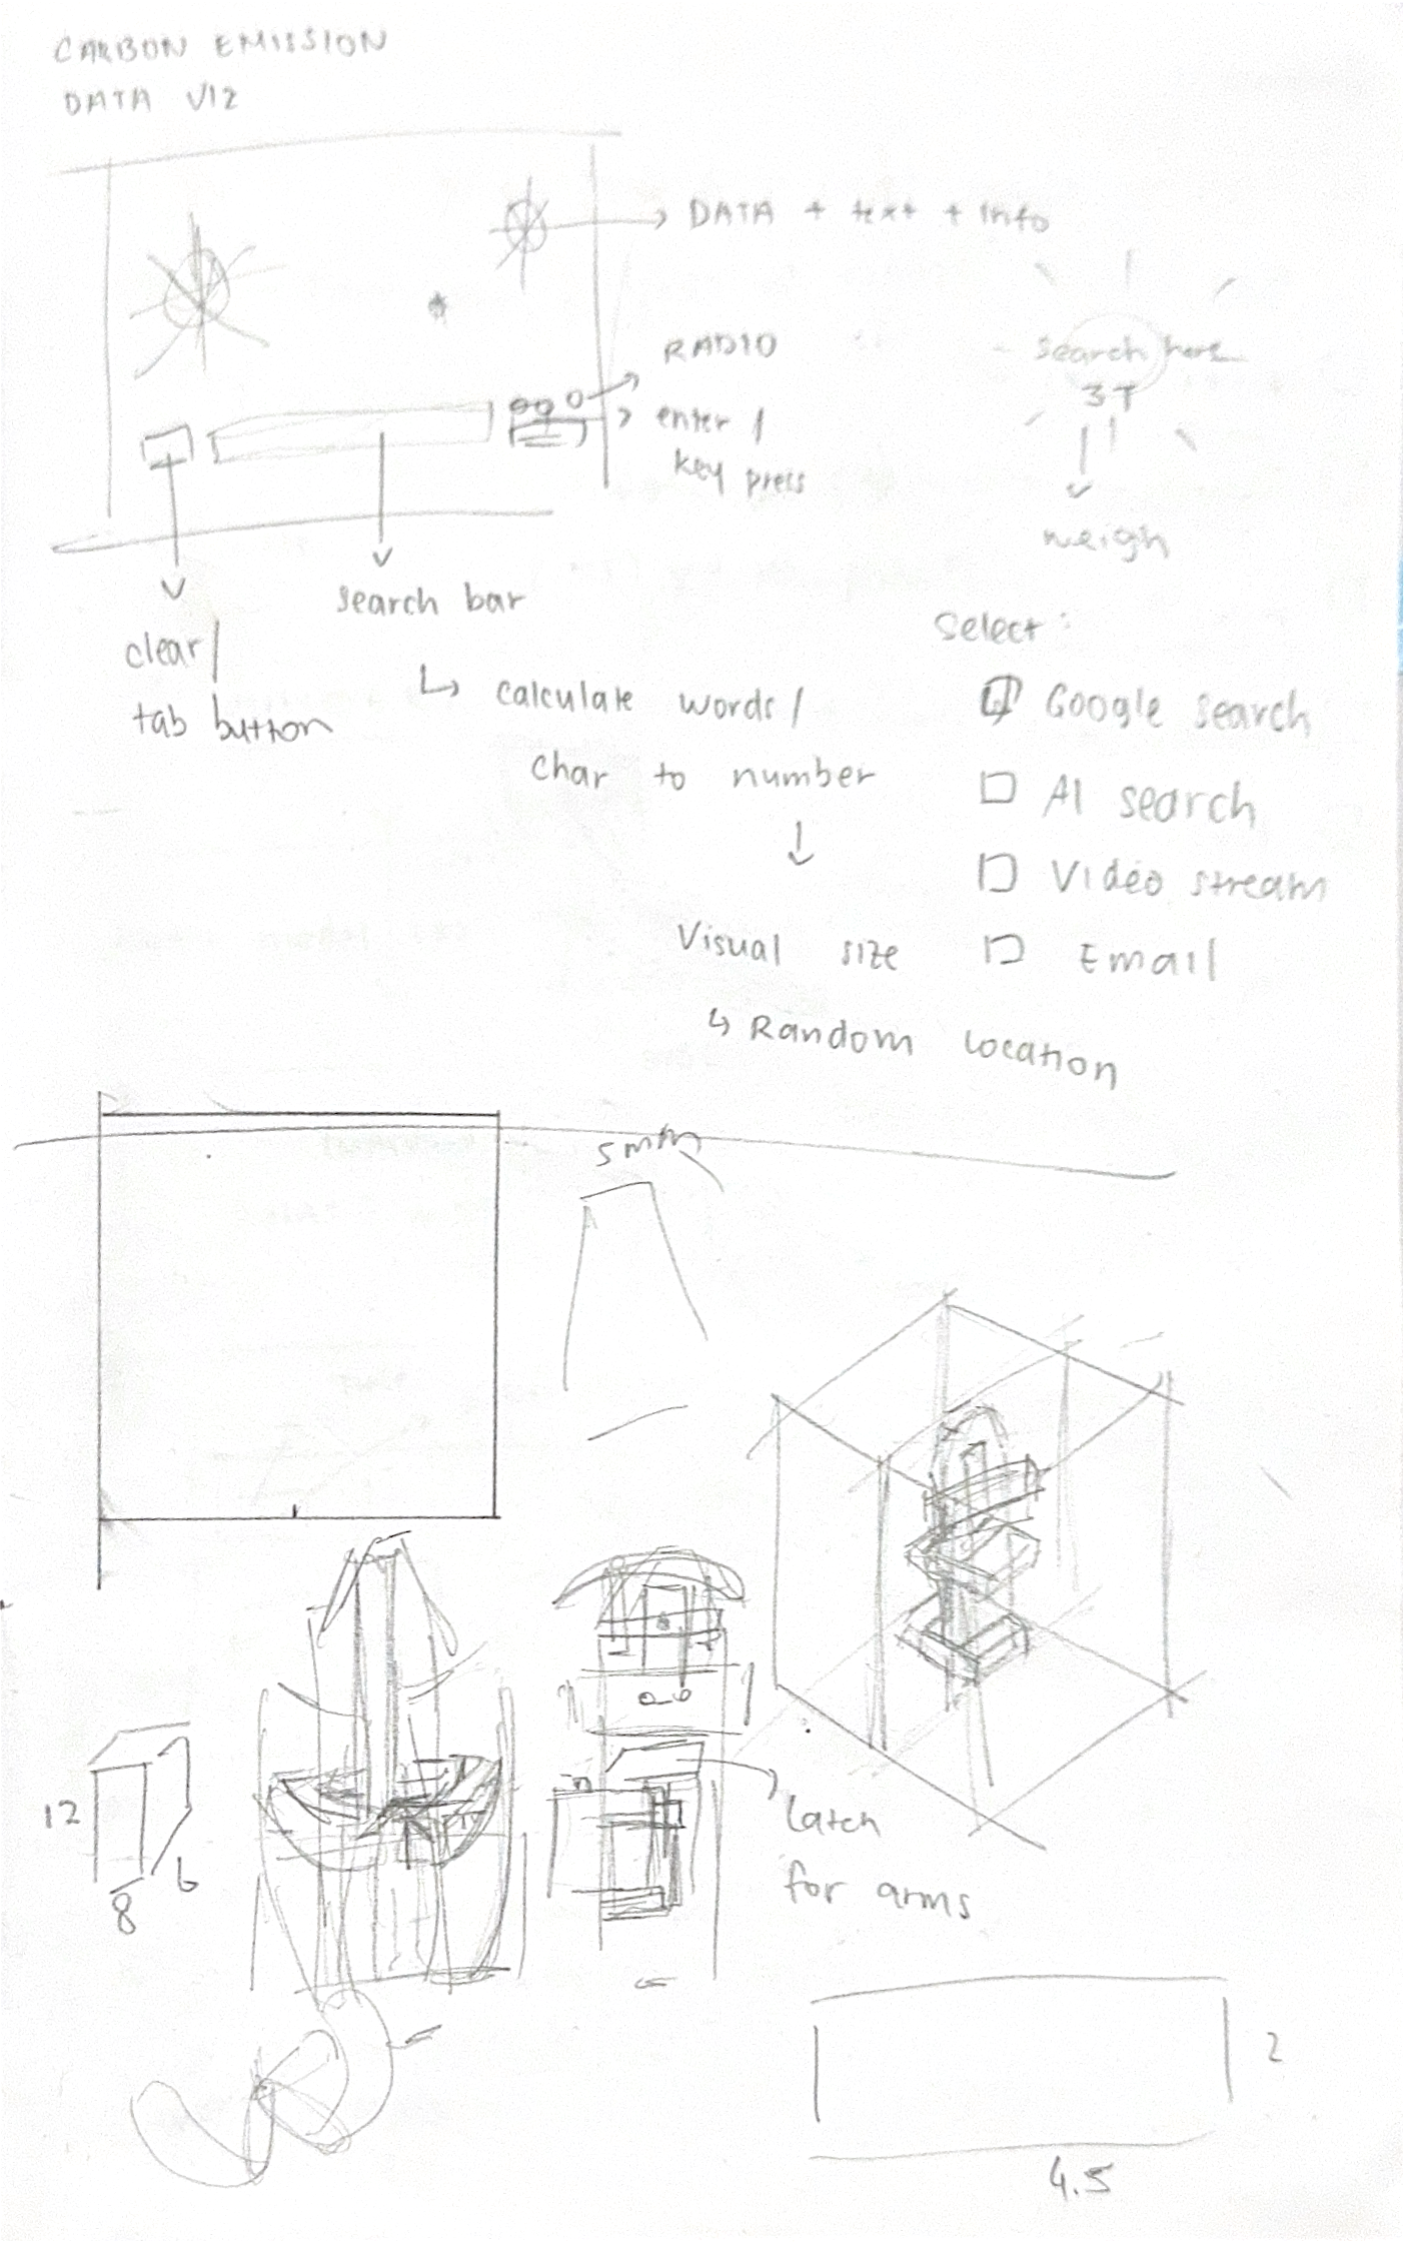 CARBON EMISSION
DATA VIZ
DATA + text + Info
RADIO
enter /
key press
search here
3T
weigh
search bar
clear/
tab button
↳ calculate words/
char to number
Visual size
↳ Random location
Select:
Google search
AI search
Video stream
Email
5mm
12
8
6
latch
for arms
2
4.5